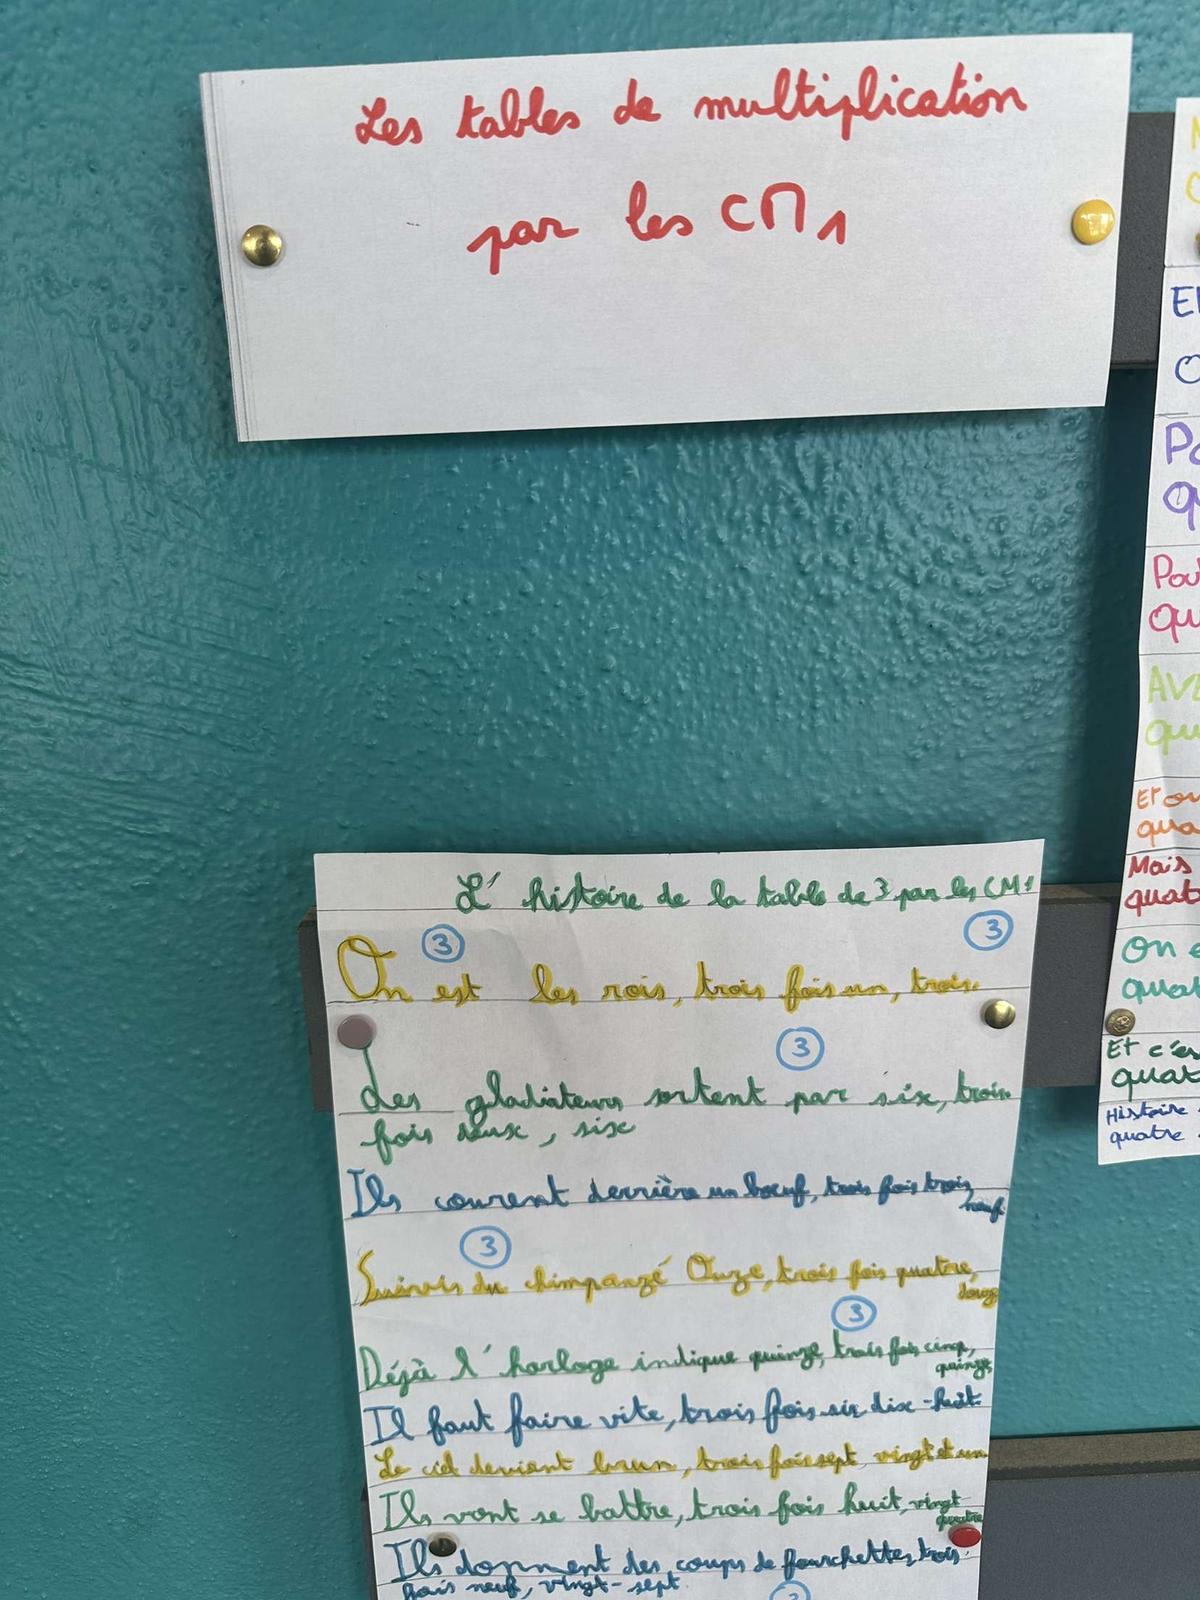 Les tables de multiplication
par les CM1
L'histoire de la table de 3 par les CM1
3
3
On est les rois, trois fois un, trois.
3
Les gladiateurs sortent par six, trois
fois deux, six
Ils courent derrière un bœuf, trois fois trois,
neuf
3
Suivis du chimpanzé Ouze, trois fois quatre,
douze
3
Déjà l'horloge indique quinze, trois fois cinq,
quinze
Il faut faire vite, trois fois six dix-huit.
Le ciel devient brun, trois fois sept, vingt et un
Ils vont se battre, trois fois huit, vingt
quatre
Ils donnent des coups de fourchettes, trois
fois neuf, vingt-sept.
3
El
Pour
qu
Et on
qua
Mais
quat
On e
quat
Et c'es
quat
Histoire
quatre